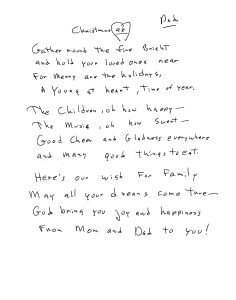 Dad
Christmas at
Gather round the fire Bright
and hold your loved ones near
For Merry are the holidays,
A Young at heart, time of year.
The Children, oh how happy—
The Music, oh how sweet—
Good Cheer and Gladness everywhere
and many good things to eat.
Here's our wish For Family
May all your dreams come true—
God bring you joy and happiness
From Mom and Dad to you!